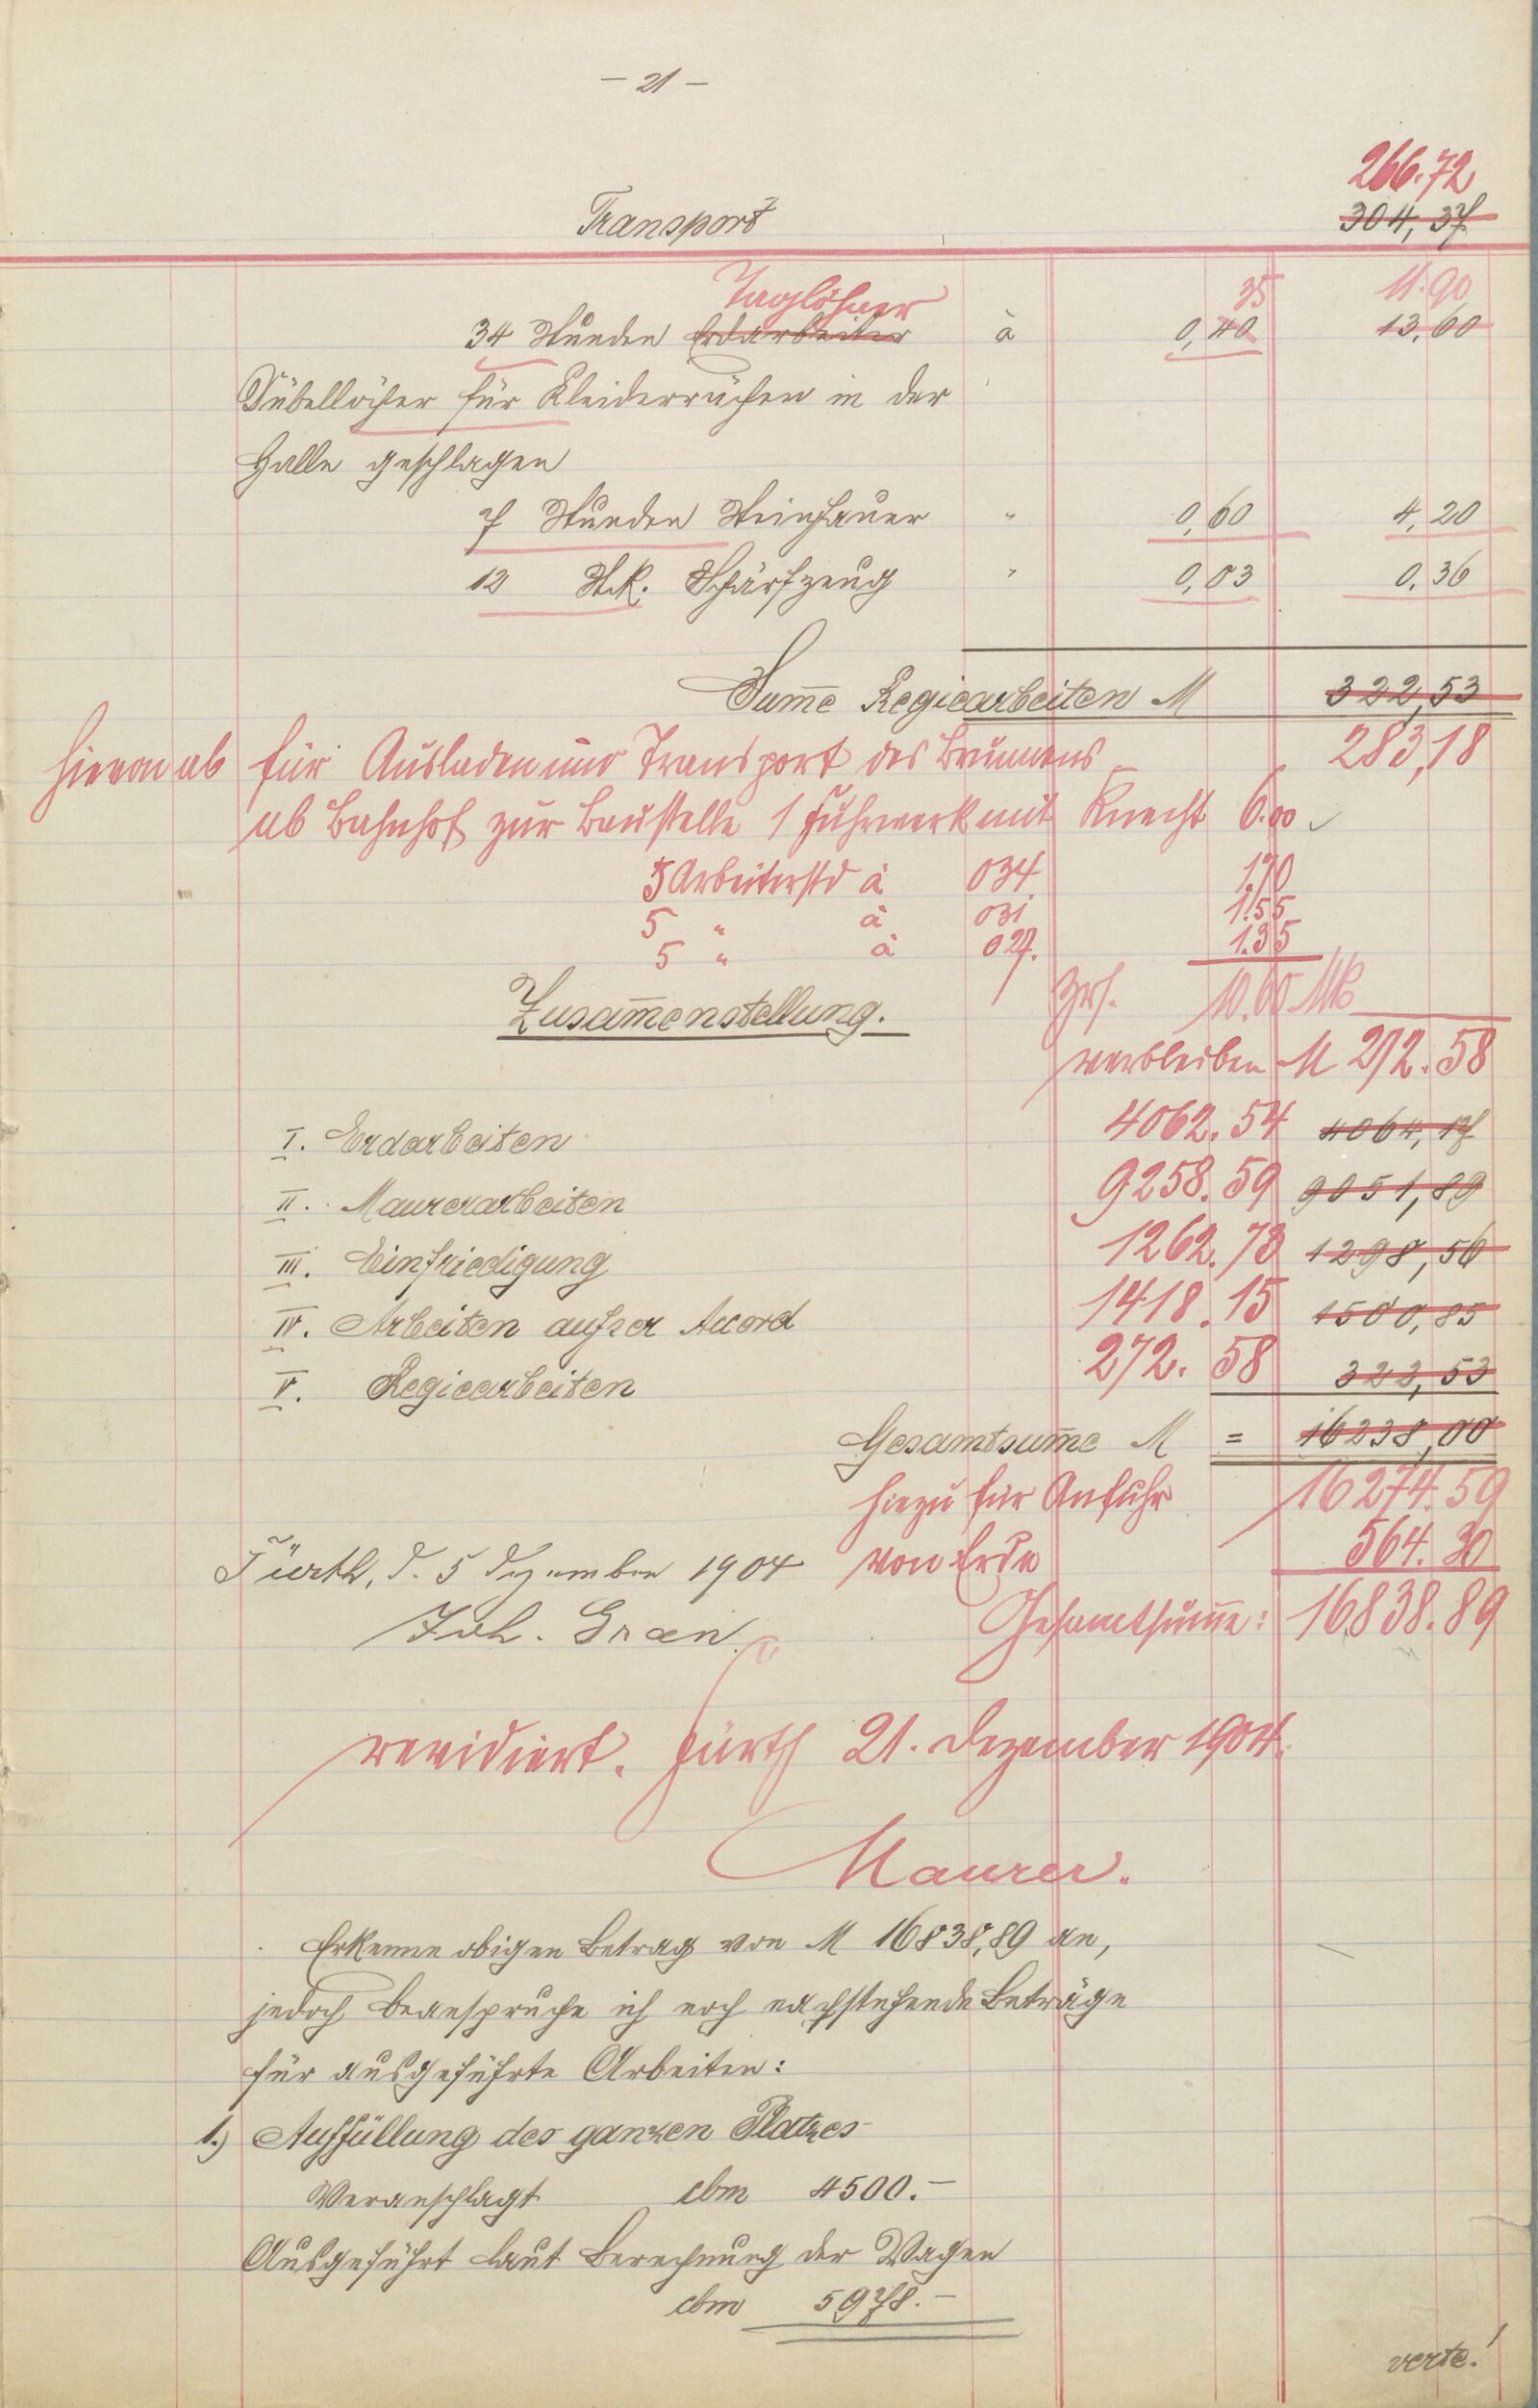 - 21 -
266.72
Transport 304,37
Taglöhner 35 11.90
34 Stunden Erdarbeiter à 0,40 13,60
Dübellöcher für Kleiderrächen in der
Halle geschlagen
7 Stunden Steinhauer " 0,60 4,20
12 Stk. Schärfzeug " 0,03 0,36
Sum̄e Regiearbeiten M 322,53
283,18
hievon ab für Ausladen und Transport des Brunnens
ab Bahnhof zur Baustelle 1 Fuhrwerk mit Knecht 6.00
5 Arbeiterstd à 034 1.70
5 " à 031 1.55
5 " à 027. 1.35
Zusam̄enstellung. Zus. 10.60 Mk
verbleiben M 272.58
I. Erdarbeiten 4062.54 4064,17
II. Maurerarbeiten 9258.59 9051,89
III. Einfriedigung 1262.73 1298,56
IV. Arbeiten außer Accord 1418.15 1500,85
V. Regiearbeiten 272.58 322,53
Gesamtsum̄e M = 16238,00
hiezu für Anfuhr 16274.59
von Erde 564.30
Fürth, d. 5 Dezember 1904
Gesamtsum̄e: 16838.89
Joh. Gran
revidiert. Fürth 21. Dezember 1904.
Maurer.
Erkenne obigen Betrag von M 16838,89 an,
jedoch beanspruche ich noch nachstehende Beträge
für ausgeführte Arbeiten:
1.) Auffüllung des ganzen Platzes
Veranschlagt cbm 4500.-
Ausgeführt laut Berechnung der Wagen
cbm 5978.-
verte!